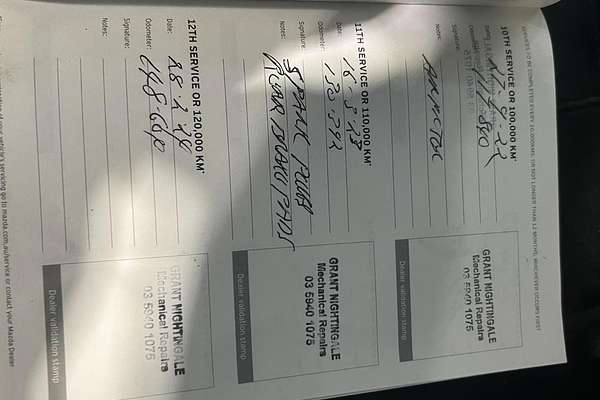 SERVICES TO BE COMPLETED EVERY 10,000KMS, OR NOT LONGER THAN 12 MONTHS, WHICHEVER OCCURS FIRST
10TH SERVICE OR 100,000 KM*
Notes:
GRANT NIGHTINGALE
Mechanical Repairs
03 5940 1075
Dealer validation stamp
11TH SERVICE OR 110,000 KM*
Date: 16-3-23
Odometer: 130 592
Signature:
Notes: SPARK PLUGS
REAR BRAKE PADS
GRANT NIGHTINGALE
Mechanical Repairs
03 5940 1075
Dealer validation stamp
12TH SERVICE OR 120,000 KM*
Date: 28-2-24
Odometer: 148-640
Signature:
Notes:
GRANT NIGHTINGALE
Mechanical Repairs
03 5940 1075
Dealer validation stamp
of your vehicle's servicing go to mazda.com.au/service or contact your Mazda Dealer